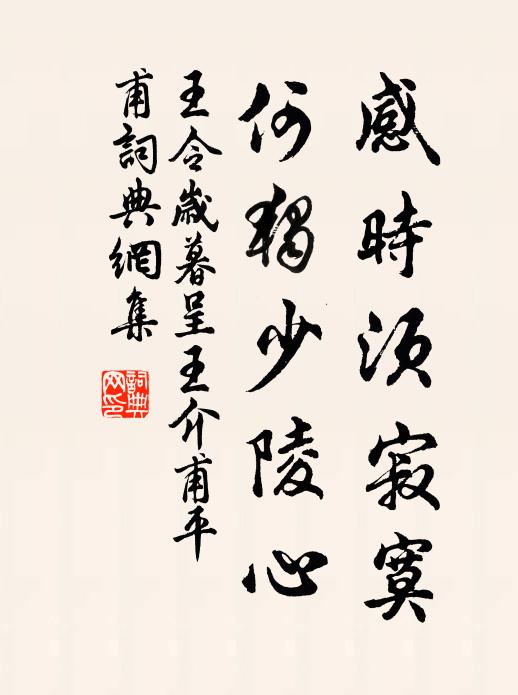 感時須寂寞
何獨少陵心
王令歲暮呈王介甫平
甫詞典網集
詞典
网印